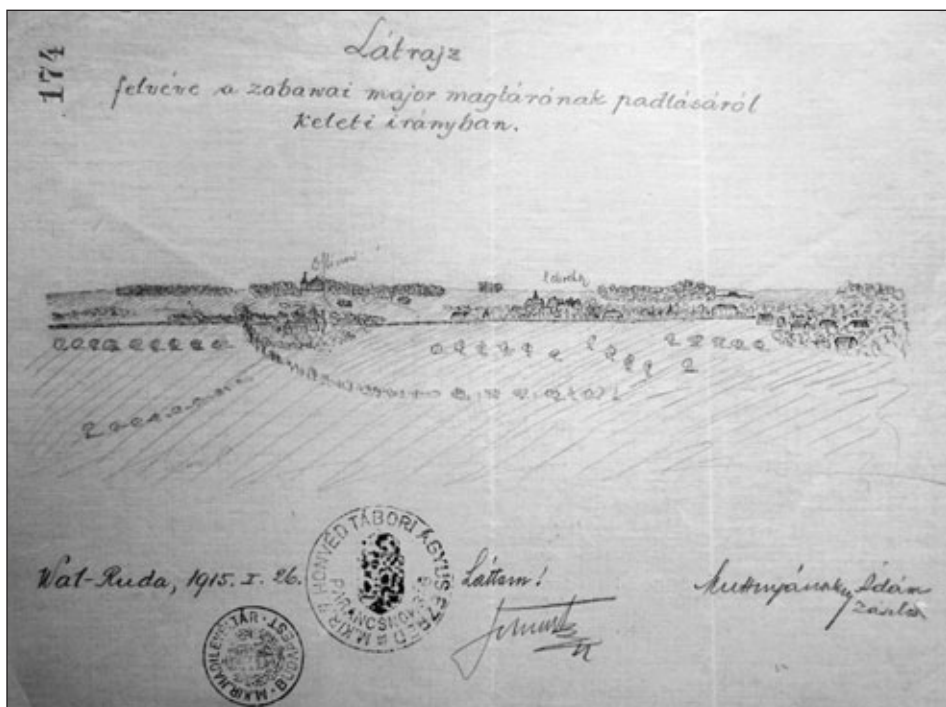 174
Látrajz
felvéve a zabawai major magtárának padlásáról
keleti irányban.
Wal-Ruda, 1915. I. 26.
M. KIR. HONVÉD TÁBORI ÁGYUS EZRED
PARANCSNOKSÁG
Láttam!
Ádám
M. KIR. HADILEVÉLTÁR · BUDAPEST